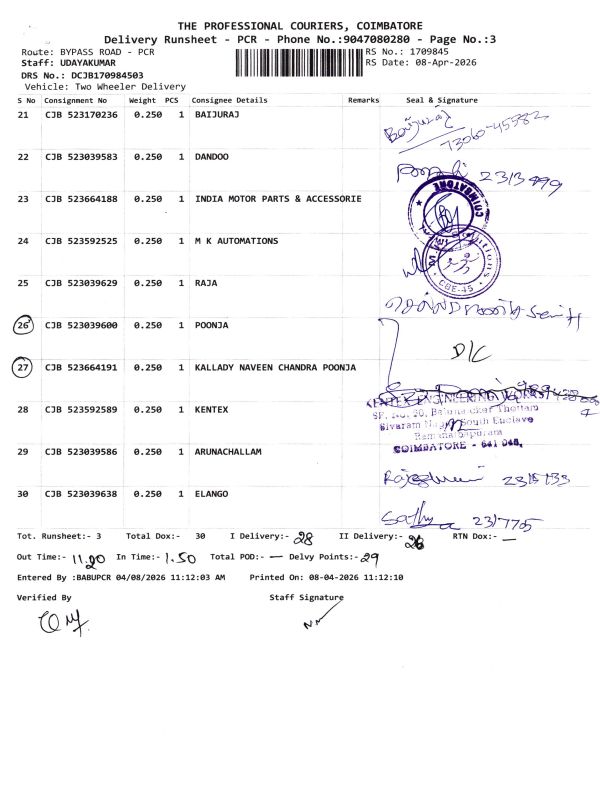 THE PROFESSIONAL COURIERS, COIMBATORE
Delivery Runsheet - PCR - Phone No.:9047080280 - Page No.:3
Route: BYPASS ROAD - PCR
RS No.: 1709845
Staff: UDAYAKUMAR
RS Date: 08-Apr-2026
DRS No.: DCJB170984503
Vehicle: Two Wheeler Delivery
S No Consignment No Weight PCS Consignee Details Remarks Seal & Signature
21 CJB 523170236 0.250 1 BAIJURAJ Baijuraj
73060-45982
22 CJB 523039583 0.250 1 DANDOO 2313499
23 CJB 523664188 0.250 1 INDIA MOTOR PARTS & ACCESSORIE COIMBATORE
24 CJB 523592525 0.250 1 M K AUTOMATIONS CBE-45
25 CJB 523039629 0.250 1 RAJA
26 CJB 523039600 0.250 1 POONJA
D/C
27 CJB 523664191 0.250 1 KALLADY NAVEEN CHANDRA POONJA
28 CJB 523592589 0.250 1 KENTEX
KENTEX ENGINEERING WORKS
SF. No. 30, Balanacker Thottam
Sivaram Nagar South Enclave
Ramanathapuram
COIMBATORE - 641 045.
29 CJB 523039586 0.250 1 ARUNACHALLAM
30 CJB 523039638 0.250 1 ELANGO Sathya 2317705
Tot. Runsheet:- 3 Total Dox:- 30 I Delivery:- 28 II Delivery:- RTN Dox:- —
Out Time:- 11.20 In Time:- 1.50 Total POD:- — Delvy Points:- 29
Entered By :BABUPCR 04/08/2026 11:12:03 AM Printed On: 08-04-2026 11:12:10
Verified By Staff Signature